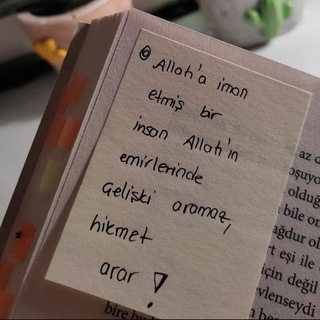 Allah'a iman
etmiş bir
insan Allah'ın
emirlerinde
Gelişki aramaz,
hikmet
arar !
az d
oşuyo
olduğ
bile on
ağdur o
t eşi ile
için değil
vlenseydi